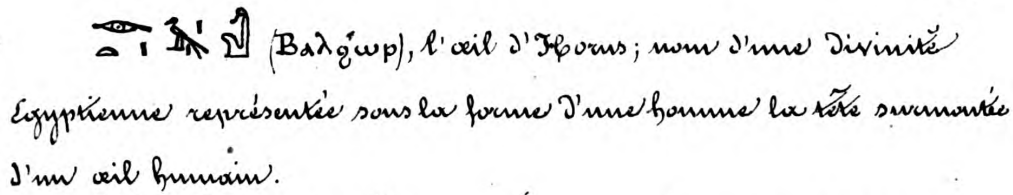 (Βαλϩωρ), l'œil d'Horus; nom d'une divinité
Egyptienne représentée sous la forme d'une homme la tête surmontée
d'un œil humain.